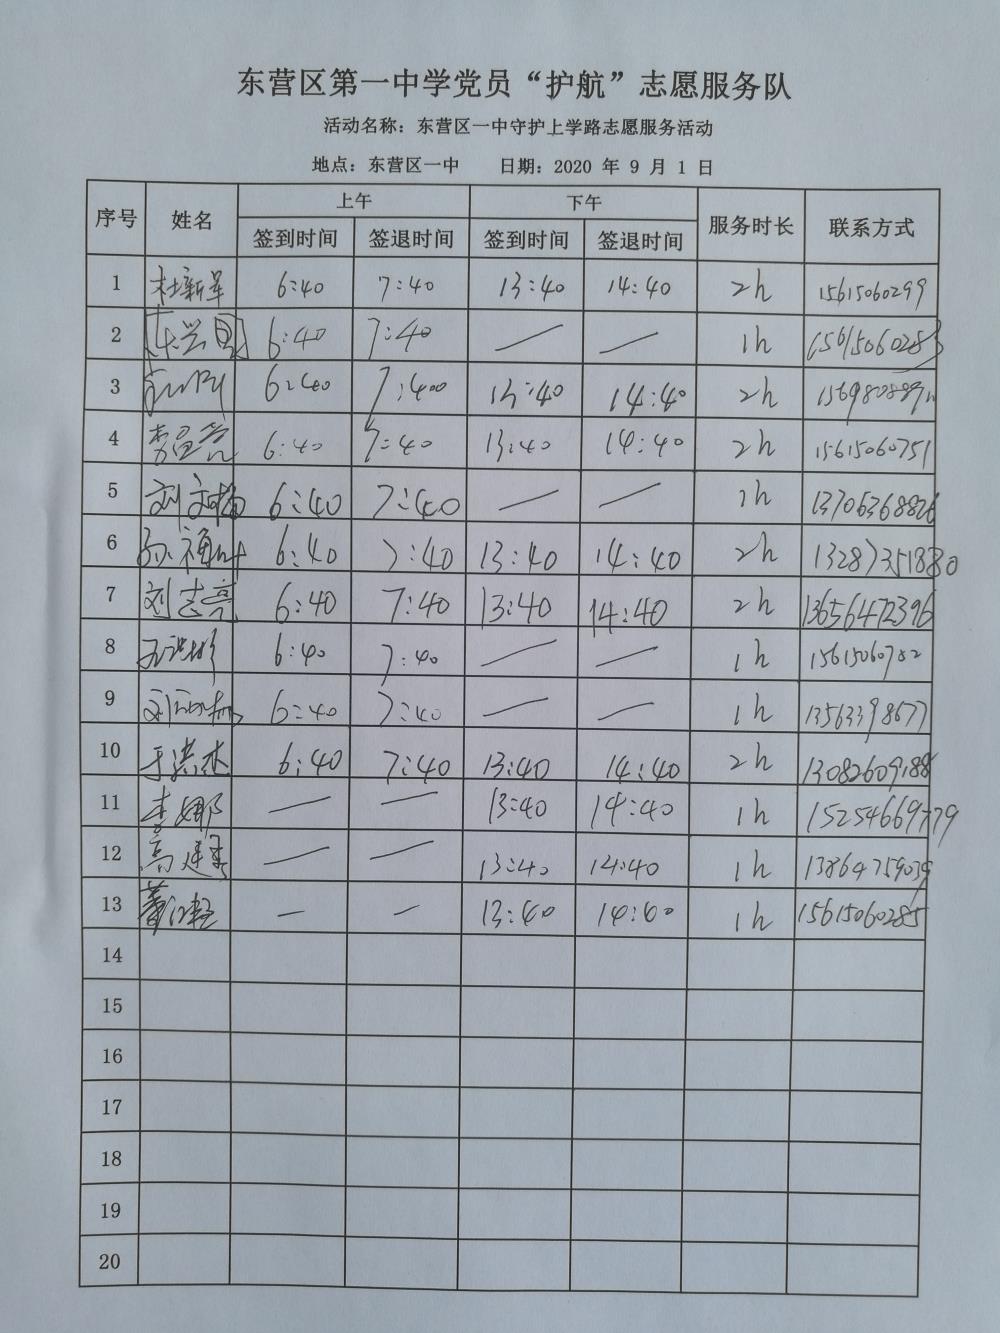 东营区第一中学党员“护航”志愿服务队
活动名称：东营区一中守护上学路志愿服务活动
地点：东营区一中 日期：2020 年 9 月 1 日
序号 姓名 上午 下午 服务时长 联系方式
签到时间 签退时间 签到时间 签退时间
1 杜新军 6:40 7:40 13:40 14:40 2h 15615060299
2 6:40 7:40 — — 1h 15615060283
3 6:40 7:400 13:40 14:40 2h
4 6:40 7:40 13:40 14:40 2h 15615060751
5 刘文梅 6:40 7:40 — — 1h 13706368826
6 6:40 7:40 13:40 14:40 2h 13287351880
7 刘志亮 6:40 7:40 13:40 14:40 2h 13656472396
8 6:40 7:40 — — 1h
9 6:40 7:40 — — 1h 13563398677
10 于洪杰 6:40 7:40 13:40 14:40 2h 13082609188
11 李娜 — — 13:40 14:40 1h 15254669779
12 — — 13:40 14:40 1h 13864759039
13 — — 13:40 14:40 1h 15615060285
14
15
16
17
18
19
20